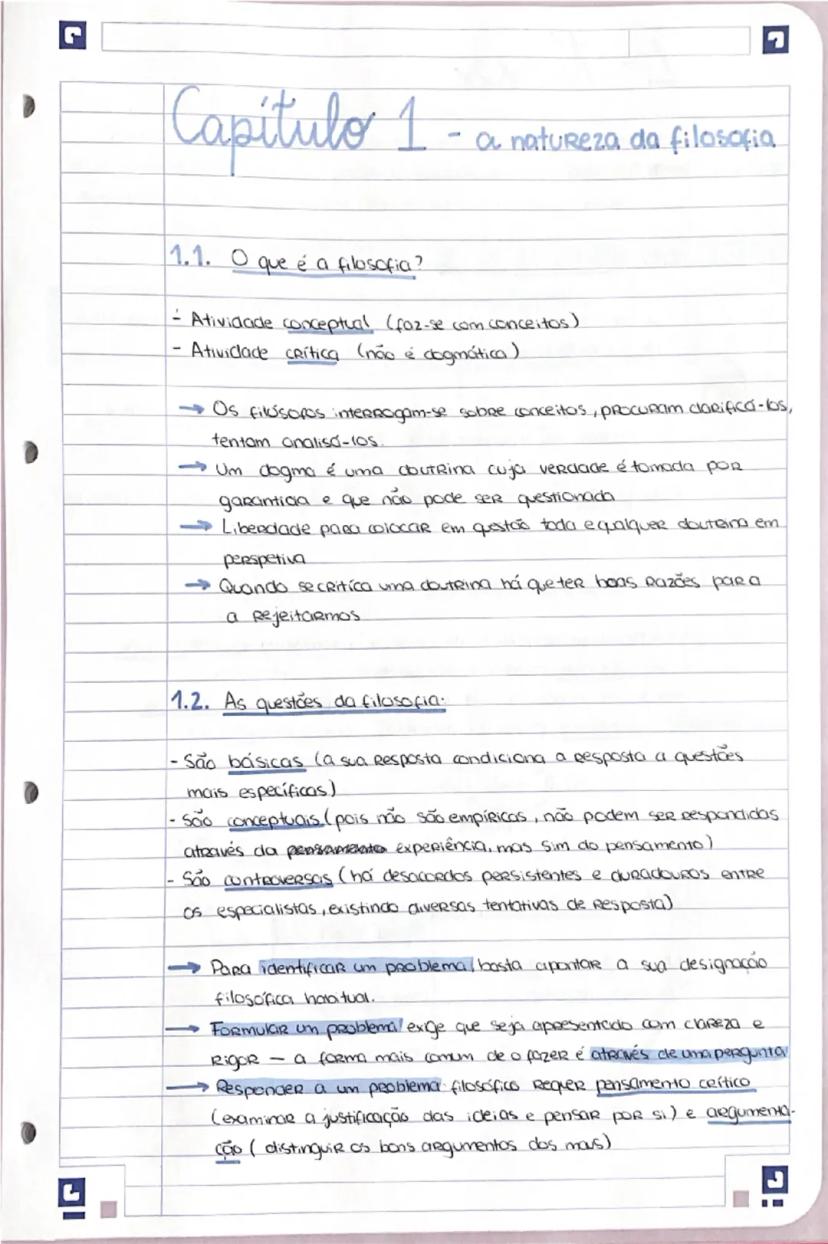 Capítulo 1 - a natureza da filosofia
1.1. O que é a filosofia?
- Atividade conceptual (faz-se com conceitos)
- Atividade crítica (não é dogmática)
→ Os filósofos interrogam-se sobre conceitos, procuram clarificá-los,
tentam analisá-los.
→ Um dogma é uma doutrina cuja verdade é tomada por
garantida e que não pode ser questionada
→ Liberdade para colocar em questão toda e qualquer doutrina em
perspetiva
→ Quando se critica uma doutrina há que ter boas razões para
a rejeitarmos
1.2. As questões da filosofia:
- São básicas (a sua resposta condiciona a resposta a questões
mais específicas)
- São conceptuais (pois não são empíricas, não podem ser respondidas
através da experiência, mas sim do pensamento)
- São controversas (há desacordos persistentes e duradouros entre
os especialistas, existindo diversas tentativas de resposta)
→ Para identificar um problema basta apontar a sua designação
filosófica habitual.
→ Formular um problema exige que seja apresentado com clareza e
rigor — a forma mais comum de o fazer é através de uma pergunta
→ Responder a um problema filosófico requer pensamento crítico
(examinar a justificação das ideias e pensar por si) e argumenta-
ção (distinguir os bons argumentos dos maus)